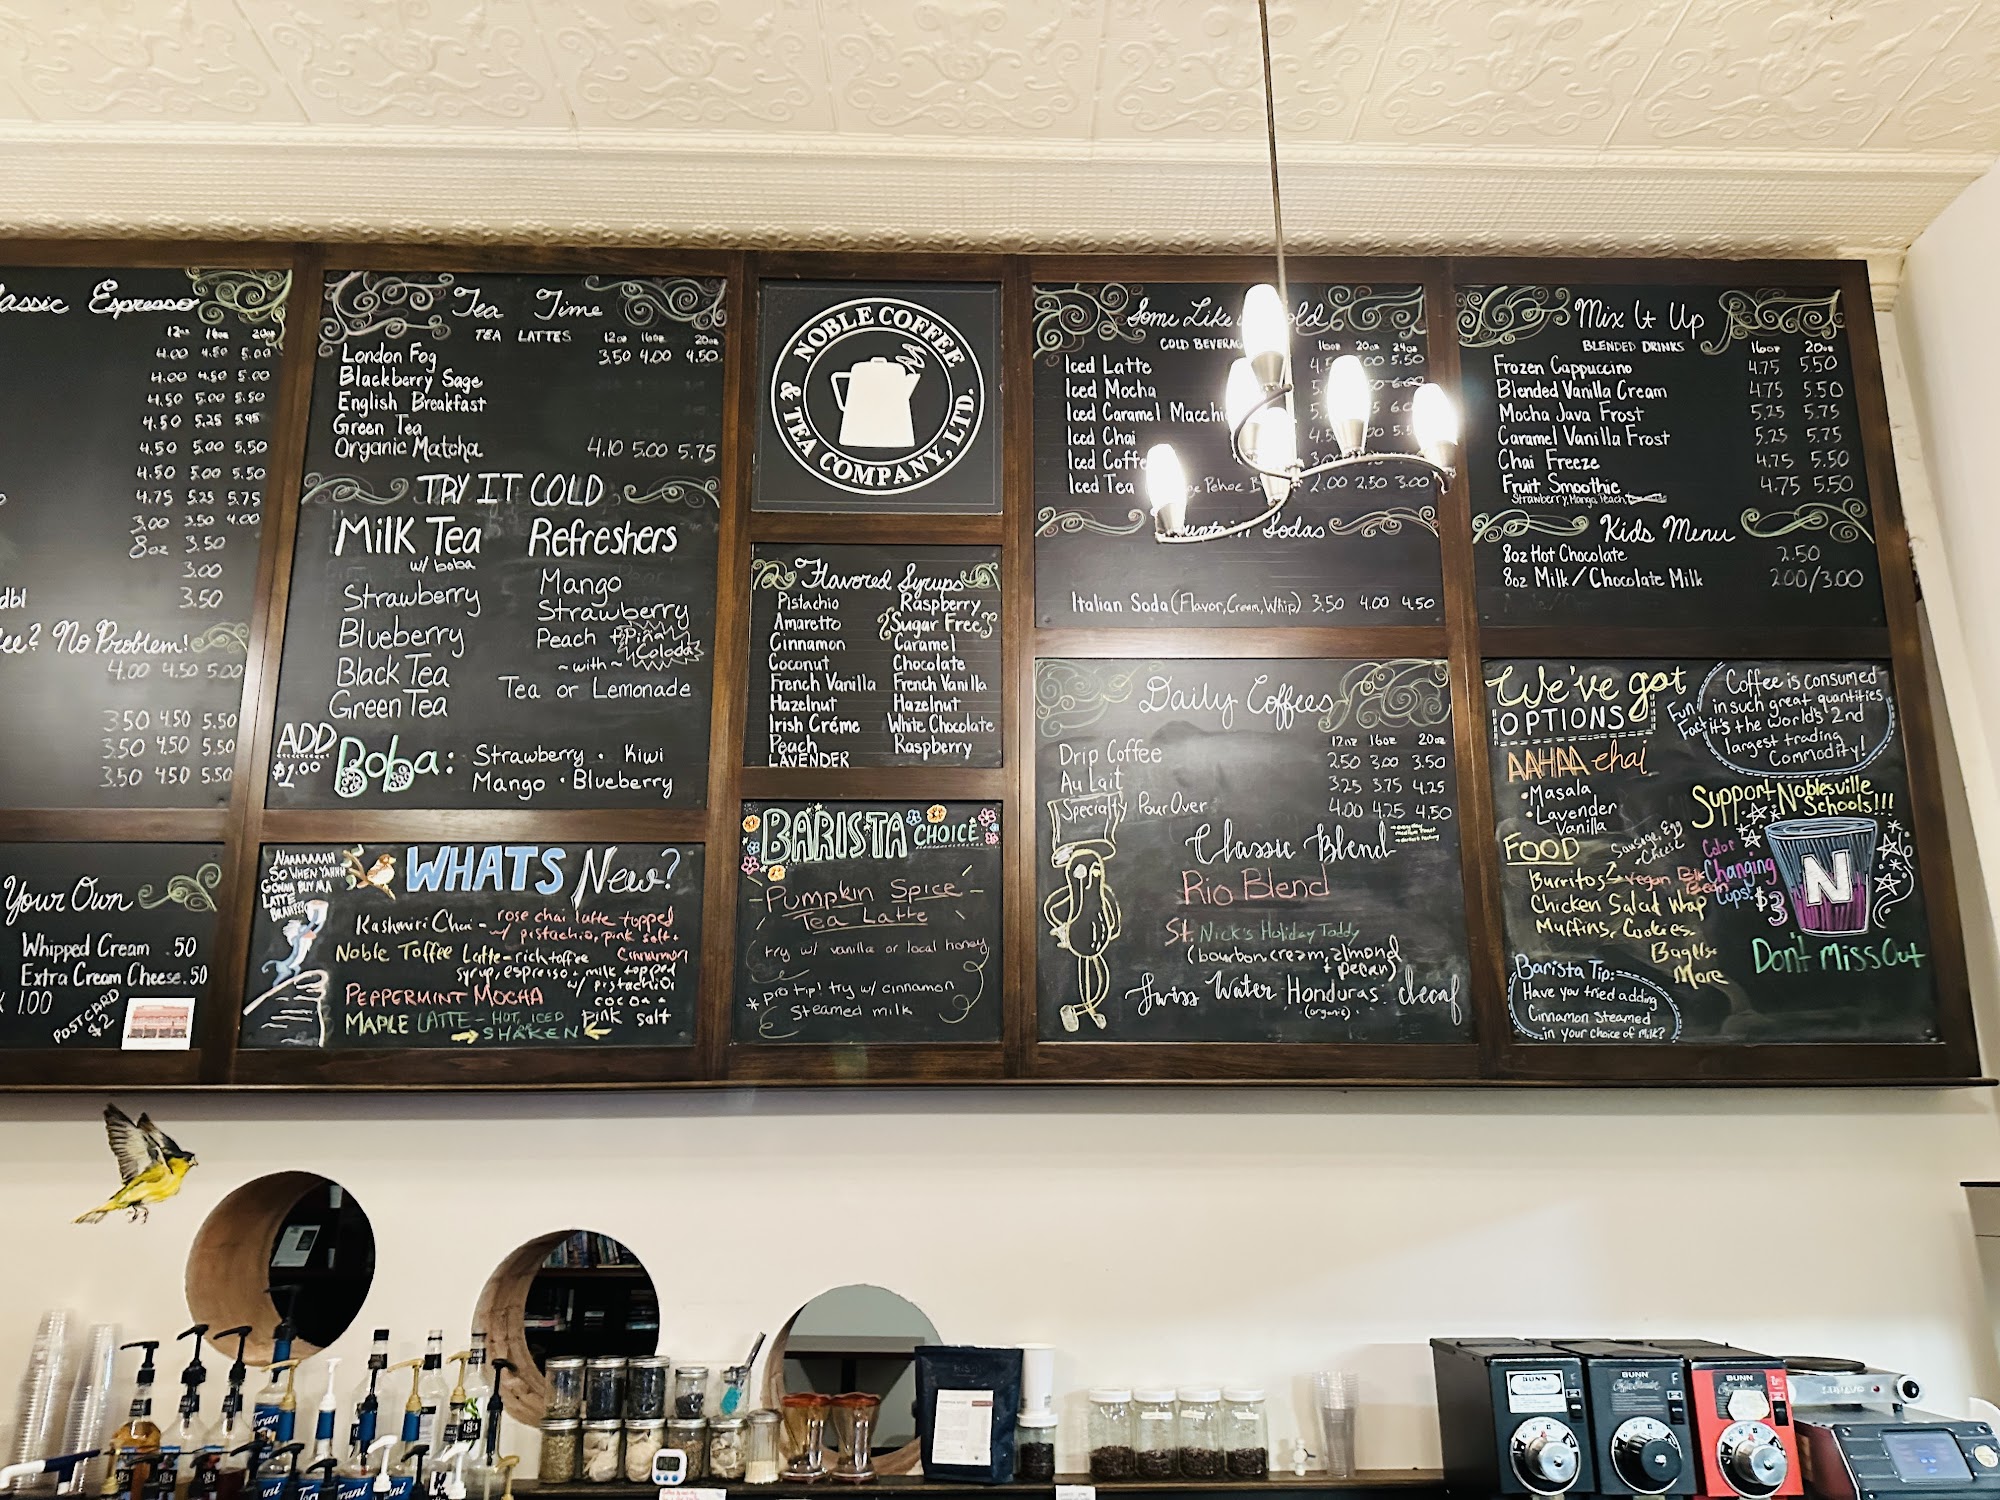 Espresso
12oz 16oz 20oz
4.00 4.50 5.00
4.00 4.50 5.00
4.50 5.00 5.50
4.50 5.25 5.95
4.50 5.00 5.50
4.50 5.00 5.50
4.75 5.25 5.75
3.00 3.50 4.00
8oz 3.50
3.00
dbl 3.50
No Problem!
4.00 4.50 5.00
3.50 4.50 5.50
3.50 4.50 5.50
3.50 4.50 5.50
Your Own
Whipped Cream .50
Extra Cream Cheese .50
1.00
POSTCARD
$2
Tea Time
TEA LATTES 12oz 16oz 20oz
London Fog 3.50 4.00 4.50
Blackberry Sage
English Breakfast
Green Tea
Organic Matcha 4.10 5.00 5.75
TRY IT COLD
Milk Tea
w/ boba
Strawberry
Blueberry
Black Tea
Green Tea
Refreshers
Mango
Strawberry
Peach + Piña Colada
~with~
Tea or Lemonade
ADD
$1.00
Boba: Strawberry • Kiwi
Mango • Blueberry
NAAAAAAAH
SO WHEN YAHHH
GONNA BUY MA
LATTE
BRAH?!?
WHATS New?
Kashmiri Chai - rose chai latte topped
w/ pistachio, pink salt +
cinnamon
Noble Toffee Latte - rich toffee
syrup, espresso + milk topped
w/ pistachio,
cocoa +
pink salt
PEPPERMINT MOCHA
MAPLE LATTE - HOT, ICED
SHAKEN
NOBLE COFFEE
& TEA COMPANY, LTD.
Flavored Syrups
Pistachio
Amaretto
Cinnamon
Coconut
French Vanilla
Hazelnut
Irish Créme
Peach
LAVENDER
Raspberry
Sugar Free
Caramel
Chocolate
French Vanilla
Hazelnut
White Chocolate
Raspberry
BARISTA CHOICE
- Pumpkin Spice -
Tea Latte
(try w/ vanilla or local honey)
* pro tip! try w/ cinnamon
steamed milk
Some Like
COLD
16oz 20oz 24oz
Iced Latte 5.50
Iced Mocha
Iced Caramel
Iced Chai
Iced
Iced Tea 2.00 2.50 3.00
Sodas
Italian Soda (Flavor, Cream, Whip) 3.50 4.00 4.50
Daily Coffees
12oz 16oz 20oz
Drip Coffee 2.50 3.00 3.50
Au Lait 3.25 3.75 4.25
Specialty Pour Over 4.00 4.25 4.50
Classic Blend
Rio Blend
St. Nick's Holiday Toddy
(bourbon cream, almond
+ pecan)
Swiss Water Honduras decaf
(organic)
Mix It Up
BLENDED DRINKS 16oz 20oz
Frozen Cappuccino 4.75 5.50
Blended Vanilla Cream 4.75 5.50
Mocha Java Frost 5.25 5.75
Caramel Vanilla Frost 5.25 5.75
Chai Freeze 4.75 5.50
Fruit Smoothie 4.75 5.50
Strawberry, Mango, Peach
Kids Menu
8oz Hot Chocolate 2.50
8oz Milk/Chocolate Milk 2.00/3.00
We've got
OPTIONS
AAHAA chai
• Masala
• Lavender
Vanilla
FOOD
Sausage, Egg
+ Cheese
Burritos
Vegan Blk
Bean
Chicken Salad Wrap
Muffins, Cookies
Bagels +
More
Barista Tip:
Have you tried adding
Cinnamon steamed
in your choice of milk?
Fun
Fact:
Coffee is consumed
in such great quantities
it's the world's 2nd
largest trading
Commodity!
Support Noblesville
Schools!!!
Color
Changing
Cups!
$3
N
Don't Miss Out
Torani
BUNN
BUNN
BUNN